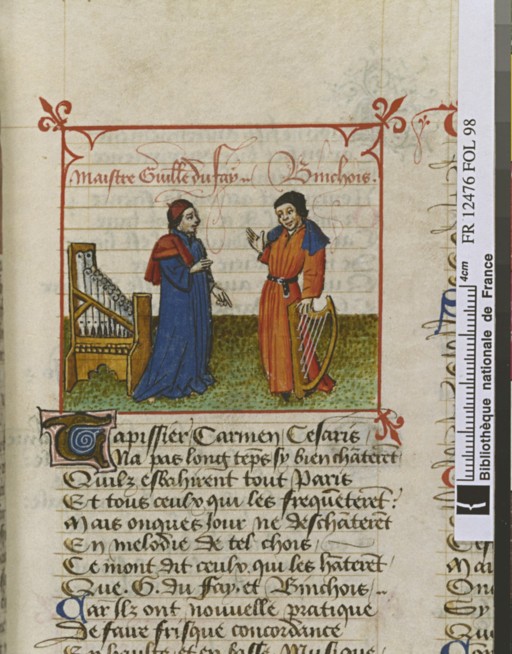 Maistre Guille du fay .. Binchois.
Tapissier / Carmen / Cesaris /
Na pas long teps sy bien chāterēt
Quilz esbahirent tout Paris
Et tous ceulx qui les frequēterēt:
Mais onques Jour ne deschāterēt
En melodie de tel chois /
Ce mont dit ceulx qui les hāterēt /
Que . G . du fay et Binchois / ..
Car Ilz ont nouuelle pratique
De faire frisque concordance
En haulte et en basse Musique
FR 12476 FOL 98
4cm
Bibliothèque nationale de France